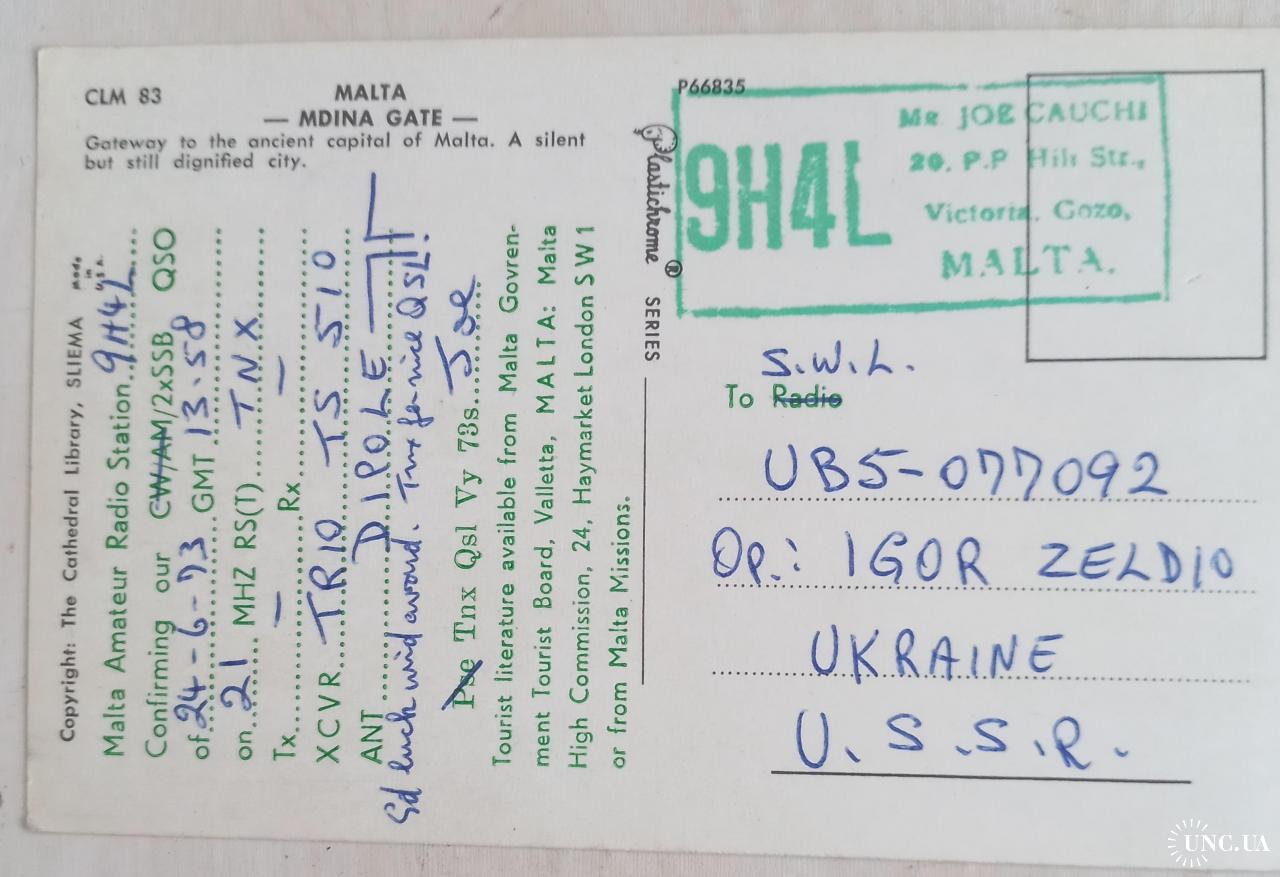 CLM 83
MALTA
— MDINA GATE —
Gateway to the ancient capital of Malta. A silent
but still dignified city.
Copyright: The Cathedral Library, SLIEMA
made
in
U.S.A.
Malta Amateur Radio Station 9H4L
Confirming our CW/AM/2xSSB QSO
of 24-6-73 GMT 13.58
on 21 MHZ RS(T) TNX
Tx — Rx —
XCVR TRIO TS 510
ANT DIPOLE
Gd luck wid award. Tnx fer nice QSL!
Pse Tnx Qsl Vy 73s Joe
Tourist literature available from Malta Govren-
ment Tourist Board, Valletta, MALTA: Malta
High Commission, 24, Haymarket London S W 1
or from Malta Missions.
Plastichrome ® SERIES
P66835
9H4L
Mr JOE CAUCHI
20. P.P Hili Str.,
Victoria, Gozo,
MALTA.
S.W.L.
To Radio
UB5-077092
Op.: IGOR ZELDIO
UKRAINE
U.S.S.R.
UNC.UA